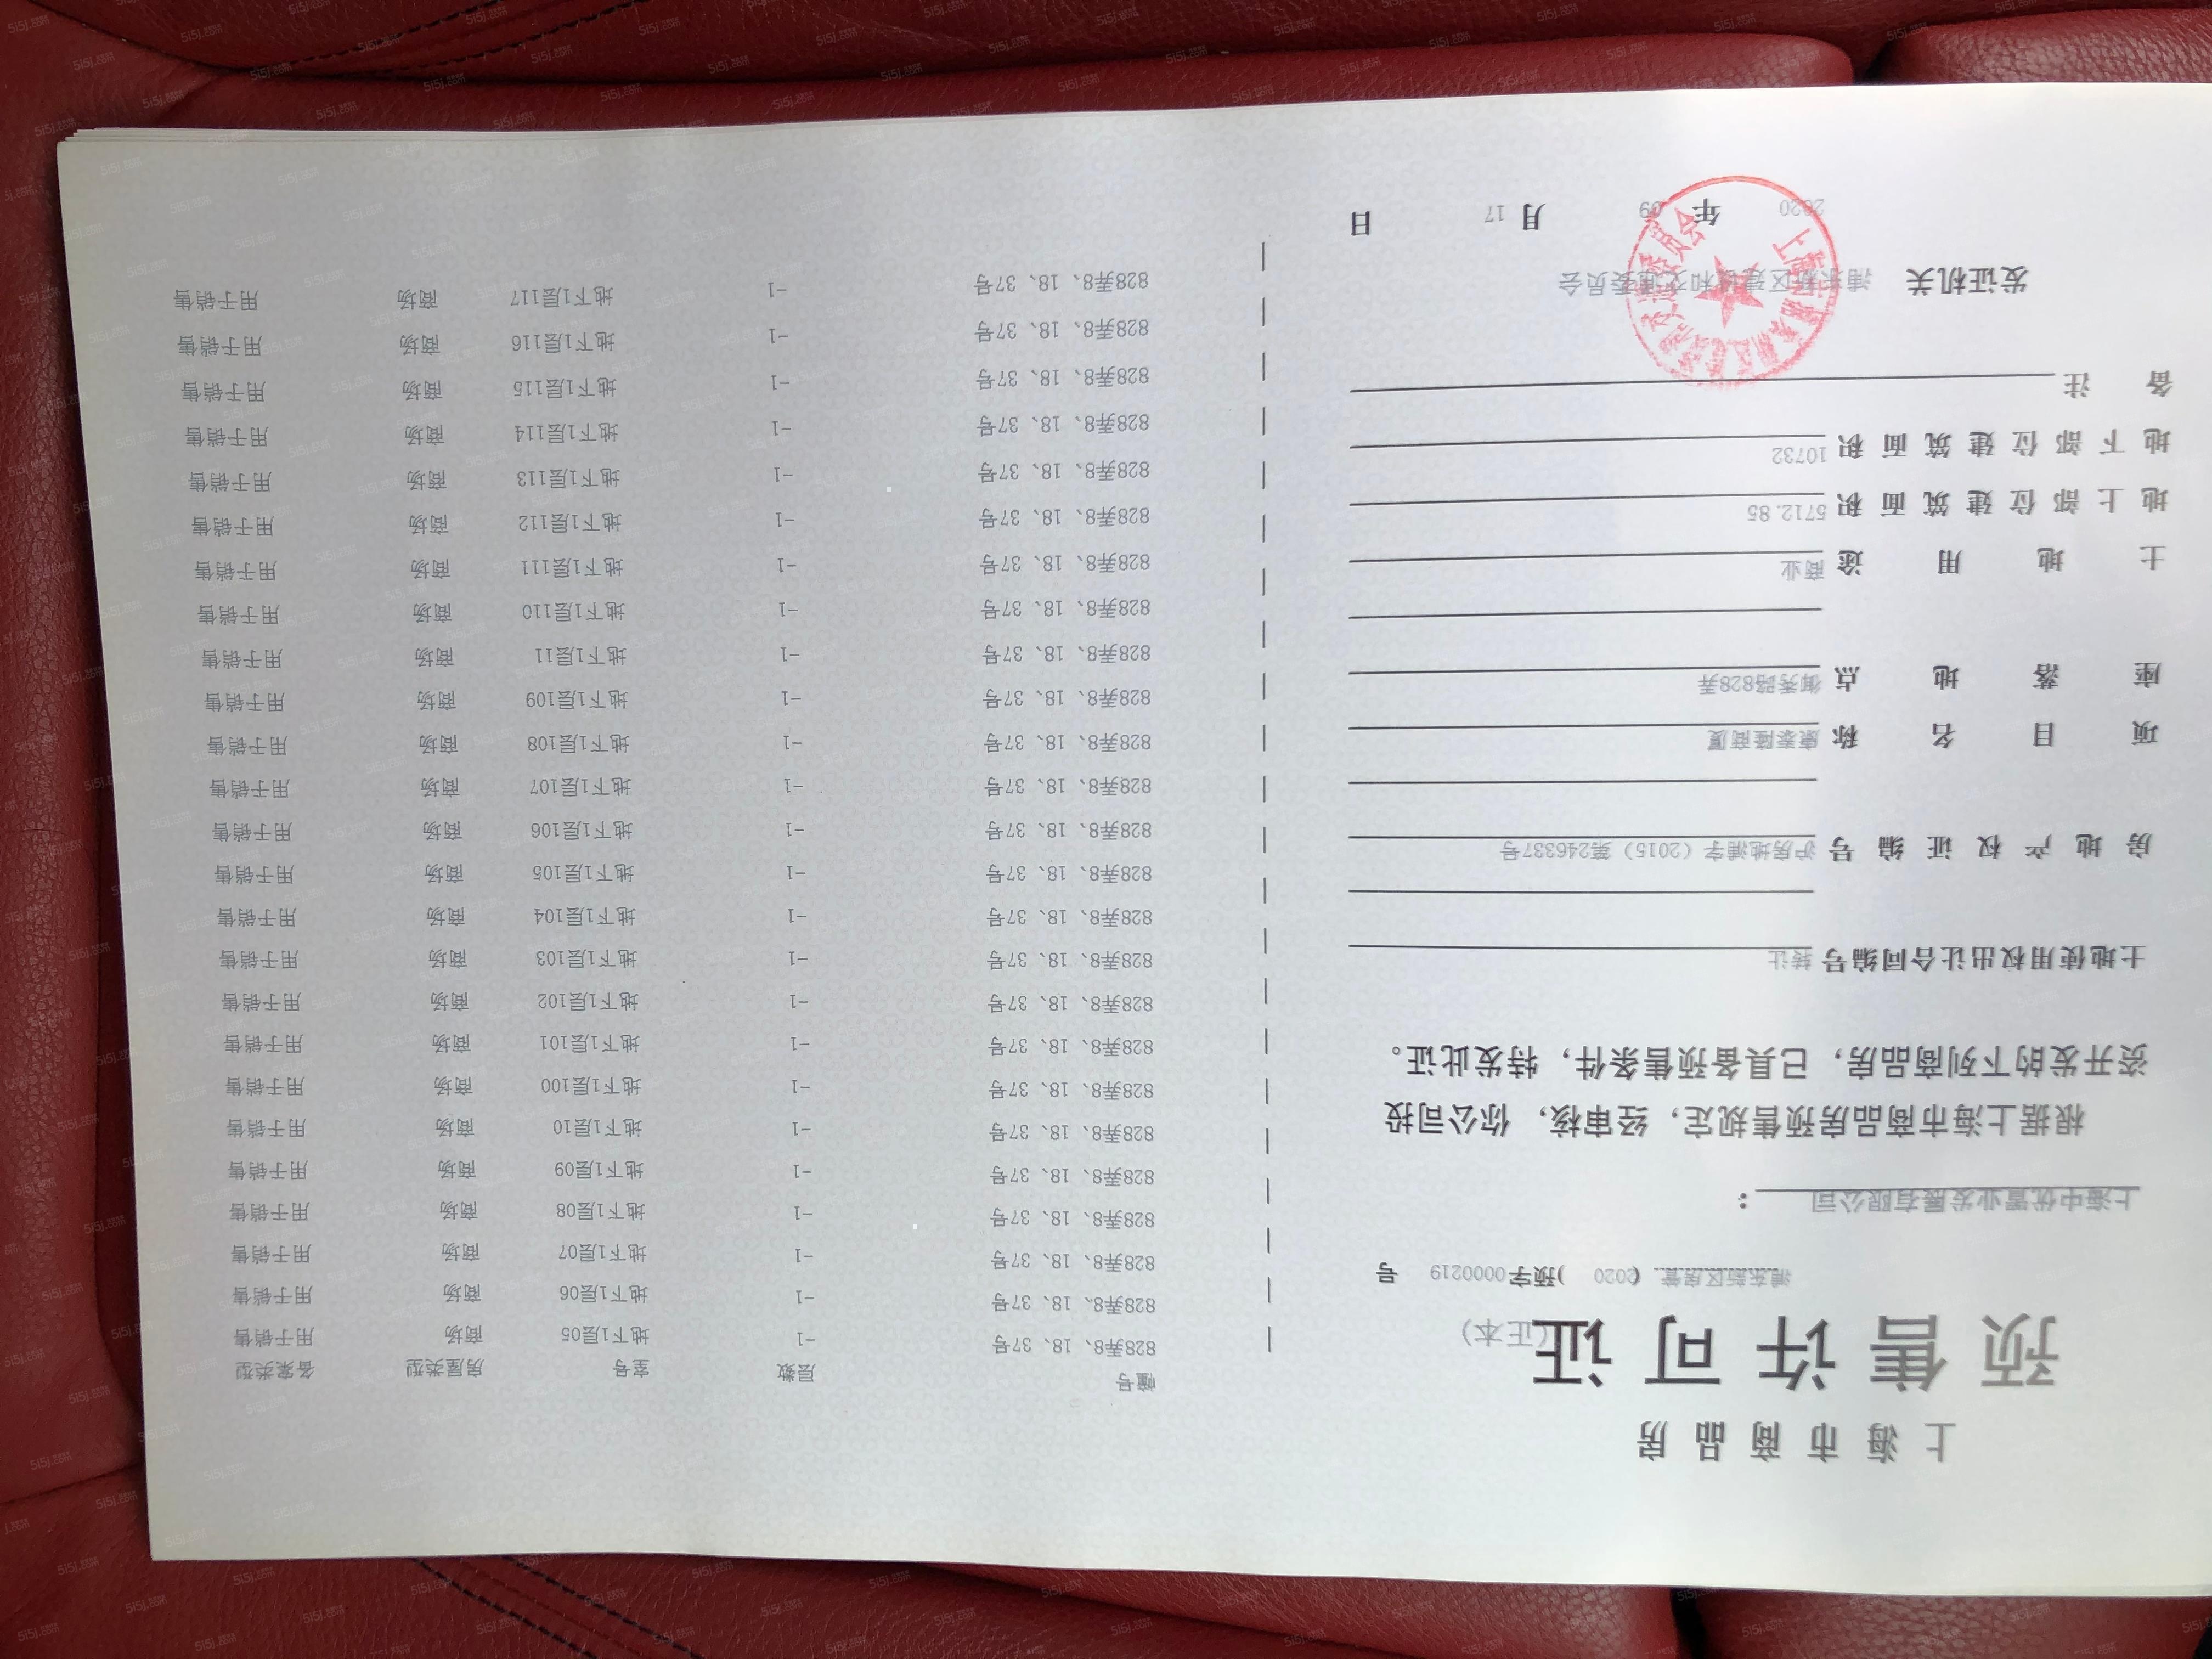 上海市商品房
预售许可证
(正本)
浦东新区房管(2020)预字0000219号
上海中优置业发展有限公司:
根据上海市商品房预售规定,经审核,你公司投
资开发的下列商品房,已具备预售条件,特发此证。
土地使用权出让合同编号 转让
房地产权证编号 沪房地浦字(2015)第246337号
项目名称 康泰隆商厦
座落地点 御秀路828弄
土地用途 商业
地上部位建筑面积 5712.85
地下部位建筑面积 10732
备注
发证机关 浦东新区建设和交通委员会
2020年09月17日
幢号 层数 室号 房屋类型 备案类型
828弄8、18、37号 -1 地下1层05 商场 用于销售
828弄8、18、37号 -1 地下1层06 商场 用于销售
828弄8、18、37号 -1 地下1层07 商场 用于销售
828弄8、18、37号 -1 地下1层08 商场 用于销售
828弄8、18、37号 -1 地下1层09 商场 用于销售
828弄8、18、37号 -1 地下1层10 商场 用于销售
828弄8、18、37号 -1 地下1层100 商场 用于销售
828弄8、18、37号 -1 地下1层101 商场 用于销售
828弄8、18、37号 -1 地下1层102 商场 用于销售
828弄8、18、37号 -1 地下1层103 商场 用于销售
828弄8、18、37号 -1 地下1层104 商场 用于销售
828弄8、18、37号 -1 地下1层105 商场 用于销售
828弄8、18、37号 -1 地下1层106 商场 用于销售
828弄8、18、37号 -1 地下1层107 商场 用于销售
828弄8、18、37号 -1 地下1层108 商场 用于销售
828弄8、18、37号 -1 地下1层109 商场 用于销售
828弄8、18、37号 -1 地下1层11 商场 用于销售
828弄8、18、37号 -1 地下1层110 商场 用于销售
828弄8、18、37号 -1 地下1层111 商场 用于销售
828弄8、18、37号 -1 地下1层112 商场 用于销售
828弄8、18、37号 -1 地下1层113 商场 用于销售
828弄8、18、37号 -1 地下1层114 商场 用于销售
828弄8、18、37号 -1 地下1层115 商场 用于销售
828弄8、18、37号 -1 地下1层116 商场 用于销售
828弄8、18、37号 -1 地下1层117 商场 用于销售